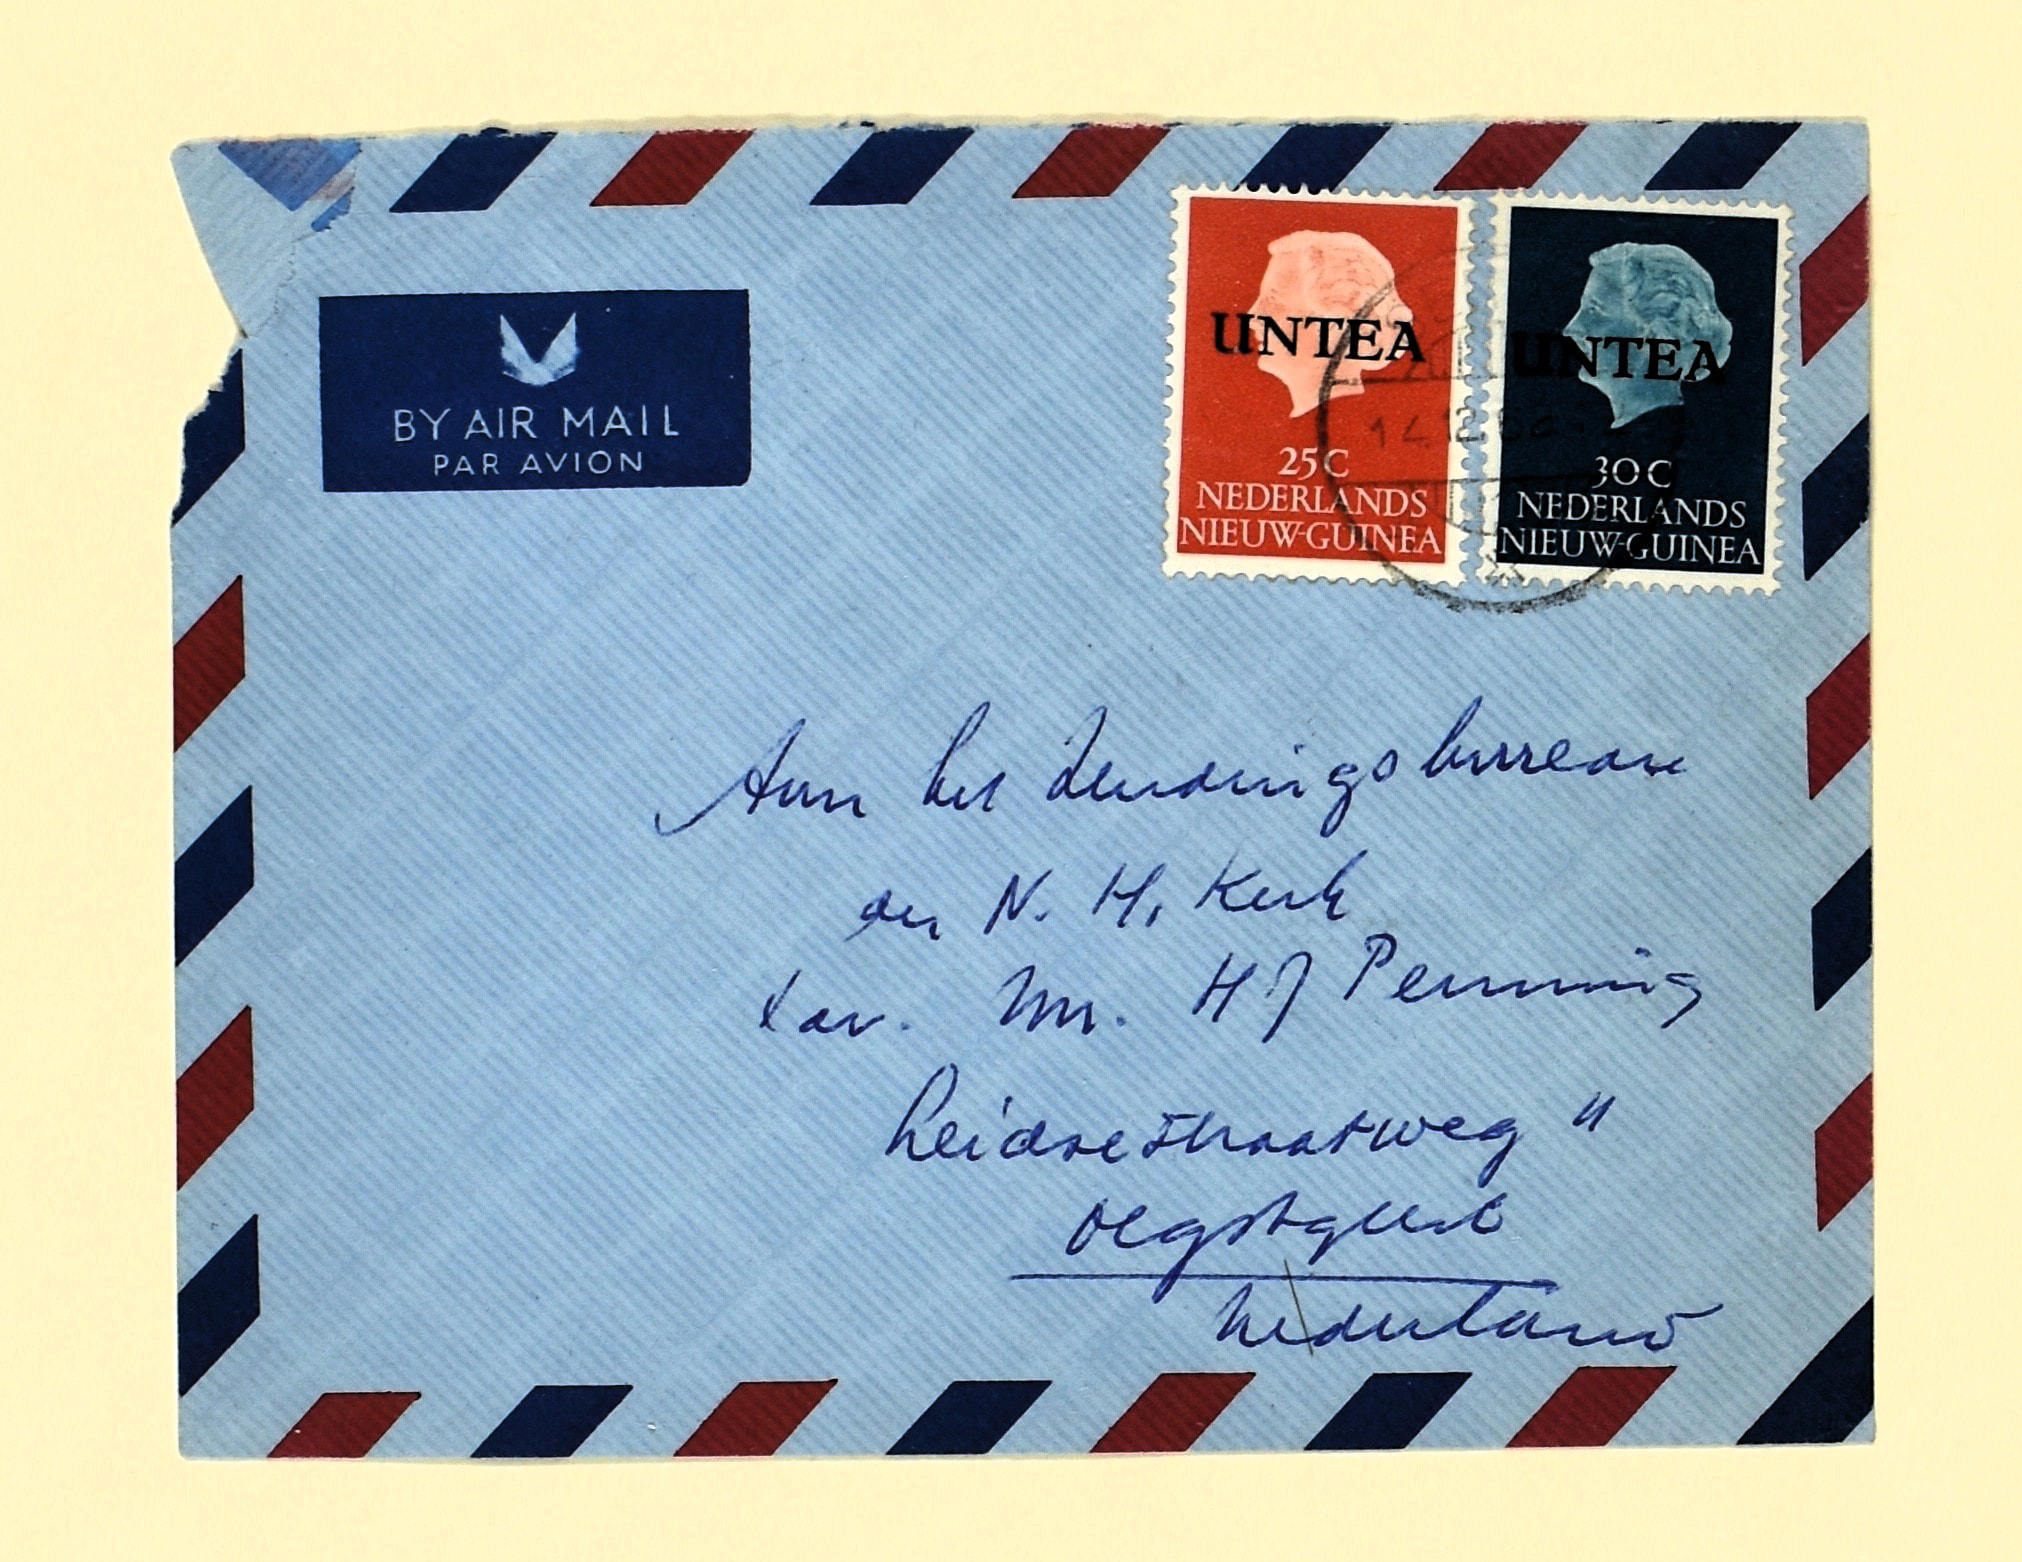 BY AIR MAIL
PAR AVION
UNTEA
25C
NEDERLANDS
NIEUW-GUINEA
UNTEA
30C
NEDERLANDS
NIEUW-GUINEA
14.12.6
Aan het Zendingsbureau
der N. H. Kerk
t.a.v. Mr. H J Penning
Leidsestraatweg 11
Oegstgeest
Nederland